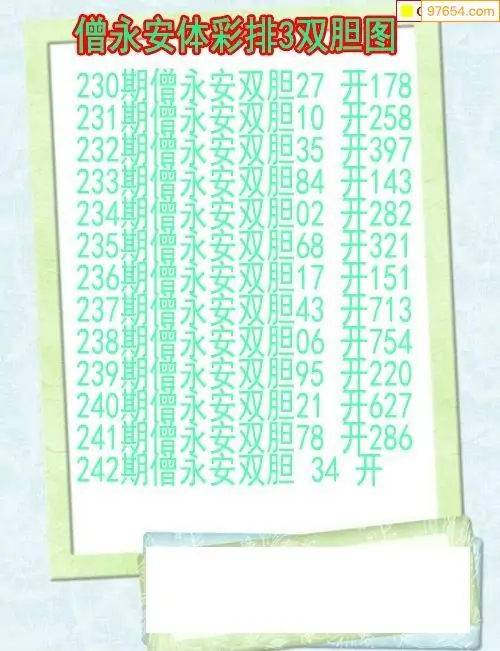 97654.com
僧永安体彩排3双胆图
230期僧永安双胆27 开178
231期僧永安双胆10 开258
232期僧永安双胆35 开397
233期僧永安双胆84 开143
234期僧永安双胆02 开282
235期僧永安双胆68 开321
236期僧永安双胆17 开151
237期僧永安双胆43 开713
238期僧永安双胆06 开754
239期僧永安双胆95 开220
240期僧永安双胆21 开627
241期僧永安双胆78 开286
242期僧永安双胆 34 开